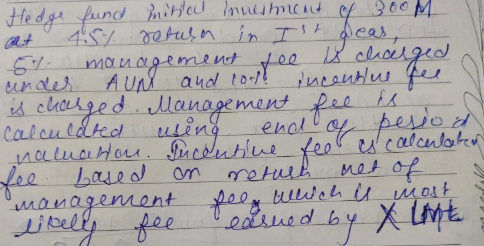 Hedge fund initial investment of 300M
at 45% return in Ist year,
5% management fee is charged
under AUM and 10% incentive fee
is charged. Management fee is
calculated using end of period
valuation. Incentive fee is calculated
fee based on return net of
management fee, which is most
likely fee earned by X